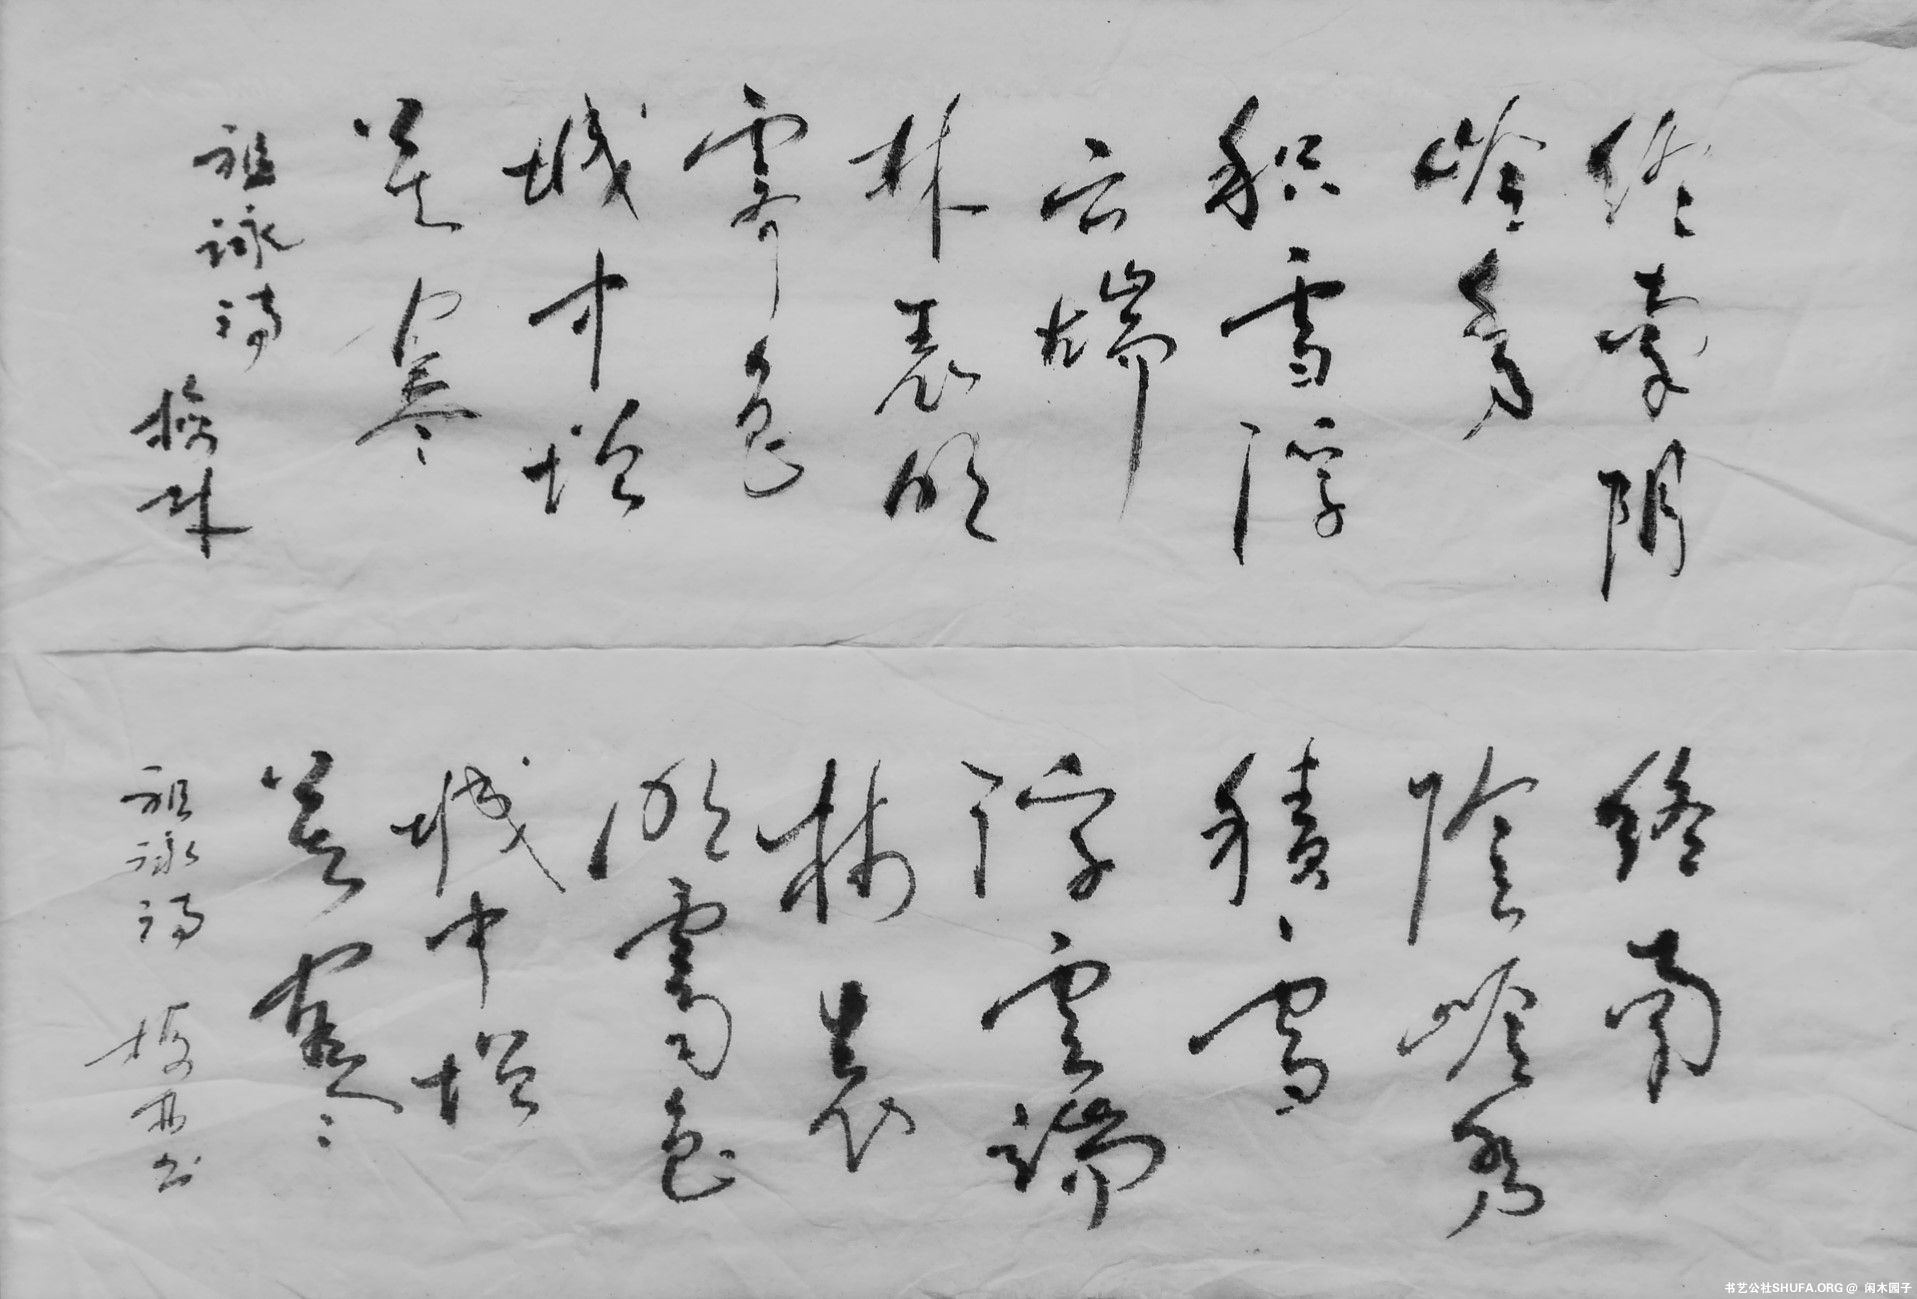 终南阴
岭秀
积雪浮
云端
林表明
霁色
城中增
暮寒
祖詠诗
林
终南
陰嶺秀
積雪
浮雲端
林表
明霁色
城中增
暮寒
祖詠诗
书
书艺公社SHUFA.ORG @ 闲木园子